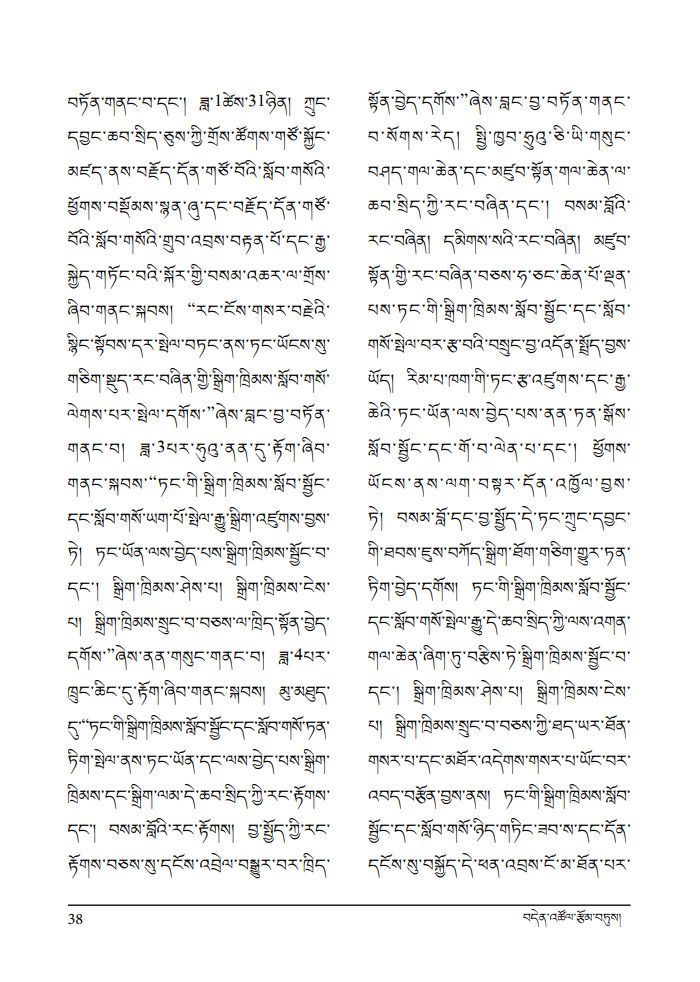 བཏོན་གནང་བ་དང་། ཟླ་1ཚེས་31ཉིན། ཀྲུང་
དབྱང་ཆབ་སྲིད་ཅུས་ཀྱི་གྲོས་ཚོགས་གཙོ་སྐྱོང་
མཛད་ནས་བརྗོད་དོན་གཙོ་བོའི་སློབ་གསོའི་
ཕྱོགས་བསྡོམས་སྙན་ཞུ་དང་བརྗོད་དོན་གཙོ་
བོའི་སློབ་གསོའི་གྲུབ་འབྲས་བརྟན་པོ་དང་རྒྱ་
སྐྱེད་གཏོང་བའི་སྐོར་གྱི་བསམ་འཆར་ལ་གྲོས་
ཞིབ་གནང་སྐབས། “རང་ངོས་གསར་བརྗེའི་
སྙིང་སྟོབས་དར་སྤེལ་བཏང་ནས་ཏང་ཡོངས་སུ་
གཅིག་སྡུད་རང་བཞིན་གྱི་སྒྲིག་ཁྲིམས་སློབ་གསོ་
ལེགས་པར་སྤེལ་དགོས་”ཞེས་བླང་བྱ་བཏོན་
གནང་བ། ཟླ་3པར་ཧུའུ་ནན་དུ་རྟོག་ཞིབ་
གནང་སྐབས་“ཏང་གི་སྒྲིག་ཁྲིམས་སློབ་སྦྱོང་
དང་སློབ་གསོ་ཡག་པོ་སྤེལ་རྒྱུ་སྒྲིག་འཛུགས་བྱས་
ཏེ། ཏང་ཡོན་ལས་བྱེད་པས་སྒྲིག་ཁྲིམས་སྦྱོང་བ་
དང་། སྒྲིག་ཁྲིམས་ཤེས་པ། སྒྲིག་ཁྲིམས་ངེས་
པ། སྒྲིག་ཁྲིམས་སྲུང་བ་བཅས་ལ་ཁྲིད་སྟོན་བྱེད་
དགོས་”ཞེས་ནན་གསུང་གནང་བ། ཟླ་4པར་
ཁྲུང་ཆིང་དུ་རྟོག་ཞིབ་གནང་སྐབས། མུ་མཐུད་
དུ་“ཏང་གི་སྒྲིག་ཁྲིམས་སློབ་སྦྱོང་དང་སློབ་གསོ་ཏན་
ཏིག་སྤེལ་ནས་ཏང་ཡོན་དང་ལས་བྱེད་པས་སྒྲིག་
ཁྲིམས་དང་སྒྲིག་ལམ་དེ་ཆབ་སྲིད་ཀྱི་རང་རྟོགས་
དང་། བསམ་བློའི་རང་རྟོགས། བྱ་སྤྱོད་ཀྱི་རང་
རྟོགས་བཅས་སུ་དངོས་འབྲེལ་བསྒྱུར་བར་ཁྲིད་
སྟོན་བྱེད་དགོས་”ཞེས་བླང་བྱ་བཏོན་གནང་
བ་སོགས་རེད། སྤྱི་ཁྱབ་ཧྲུའུ་ཅི་ཡི་གསུང་
བཤད་གལ་ཆེན་དང་མཛུབ་སྟོན་གལ་ཆེན་ལ་
ཆབ་སྲིད་ཀྱི་རང་བཞིན་དང་། བསམ་བློའི་
རང་བཞིན། དམིགས་སའི་རང་བཞིན། མཛུབ་
སྟོན་གྱི་རང་བཞིན་བཅས་ཧ་ཅང་ཆེན་པོ་ལྡན་
པས་ཏང་གི་སྒྲིག་ཁྲིམས་སློབ་སྦྱོང་དང་སློབ་
གསོ་སྤེལ་བར་རྩ་བའི་བསྲུང་བྱ་འདོན་སྤྲོད་བྱས་
ཡོད། རིམ་པ་ཁག་གི་ཏང་རྩ་འཛུགས་དང་རྒྱ་
ཆེའི་ཏང་ཡོན་ལས་བྱེད་པས་ནན་ཏན་སྒོས་
སློབ་སྦྱོང་དང་གོ་བ་ལེན་པ་དང་། ཕྱོགས་
ཡོངས་ནས་ལག་བསྟར་དོན་འཁྱོལ་བྱས་
ཏེ། བསམ་བློ་དང་བྱ་སྤྱོད་དེ་ཏང་ཀྲུང་དབྱང་
གི་ཐབས་ཇུས་བཀོད་སྒྲིག་ཐོག་གཅིག་གྱུར་ཏན་
ཏིག་བྱེད་དགོས། ཏང་གི་སྒྲིག་ཁྲིམས་སློབ་སྦྱོང་
དང་སློབ་གསོ་སྤེལ་རྒྱུ་དེ་ཆབ་སྲིད་ཀྱི་ལས་འགན་
གལ་ཆེན་ཞིག་ཏུ་བརྩིས་ཏེ་སྒྲིག་ཁྲིམས་སྦྱོང་བ་
དང་། སྒྲིག་ཁྲིམས་ཤེས་པ། སྒྲིག་ཁྲིམས་ངེས་
པ། སྒྲིག་ཁྲིམས་སྲུང་བ་བཅས་ཀྱི་ཐད་ཡར་ཐོན་
གསར་པ་དང་མཐོར་འདེགས་གསར་པ་ཡོང་བར་
འབད་བརྩོན་བྱས་ནས། ཏང་གི་སྒྲིག་ཁྲིམས་སློབ་
སྦྱོང་དང་སློབ་གསོ་ཉིད་གཏིང་ཟབ་ས་དང་དོན་
དངོས་སུ་བསྐྱོད་དེ་ཕན་འབྲས་ངོ་མ་ཐོན་པར་
38
བདེན་འཚོལ་རྩོམ་བཏུས།